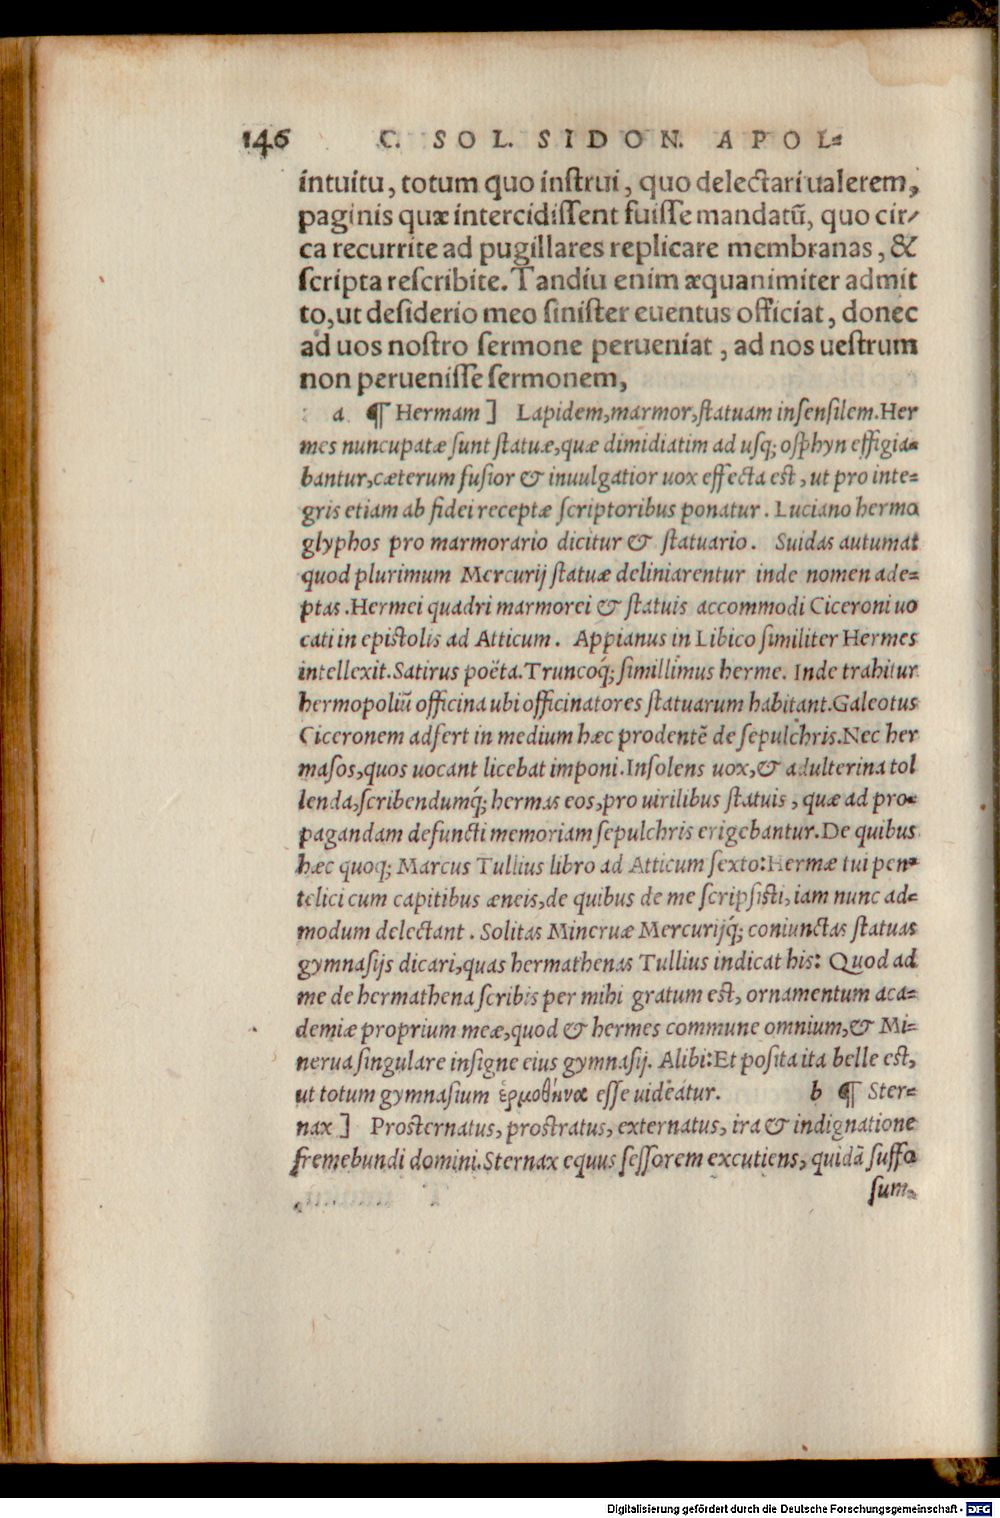 146 C. SOL. SIDON. APOL-
intuitu, totum quo instrui, quo delectari ualerem,
paginis quæ intercidissent fuisse mandatũ, quo cir-
ca recurrite ad pugillares replicare membranas, &
scripta rescribite. Tandiu enim æquanimiter admit
to, ut desiderio meo sinister euentus officiat, donec
ad uos nostro sermone perueniat, ad nos uestrum
non peruenisse sermonem,
a ¶ Hermam] Lapidem, marmor, statuam insensilem. Her
mes nuncupatæ sunt statuæ, quæ dimidiatim ad usq; osphyn effigia-
bantur, cæterum fusior & inuulgatior uox effecta est, ut pro inte-
gris etiam ab fidei receptæ scriptoribus ponatur. Luciano hermo
glyphos pro marmorario dicitur & statuario. Suidas autumat
quod plurimum Mercurij statuæ deliniarentur inde nomen ade-
ptas. Hermei quadri marmorei & statuis accommodi Ciceroni uo
cati in epistolis ad Atticum. Appianus in Libico similiter Hermes
intellexit. Satirus poëta. Truncoq́; simillimus herme. Inde trahitur
hermopoliũ officina ubi officinatores statuarum habitant. Galeotus
Ciceronem adfert in medium hæc prodentẽ de sepulchris. Nec her
masos, quos uocant licebat imponi. Insolens uox, & adulterina tol
lenda, scribendumq́; hermas eos, pro uirilibus statuis, quæ ad pro-
pagandam defuncti memoriam sepulchris erigebantur. De quibus
hæc quoq; Marcus Tullius libro ad Atticum sexto: Hermæ tui pen-
telici cum capitibus æneis, de quibus de me scripsisti, iam nunc ad-
modum delectant. Solitas Mineruæ Mercurijq́; coniunctas statuas
gymnasijs dicari, quas hermathenas Tullius indicat his: Quod ad
me de hermathena scribis per mihi gratum est, ornamentum aca-
demiæ proprium meæ, quod & hermes commune omnium, & Mi-
nerua singulare insigne eius gymnasij. Alibi: Et posita ita belle est,
ut totum gymnasium ἑρμοθήνα esse uideatur. b ¶ Ster-
nax] Prosternatus, prostratus, externatus, ira & indignatione
fremebundi domini. Sternax equus sessorem excutiens, quidã suffo
sum.
Digitalisierung gefördert durch die Deutsche Forschungsgemeinschaft - DFG